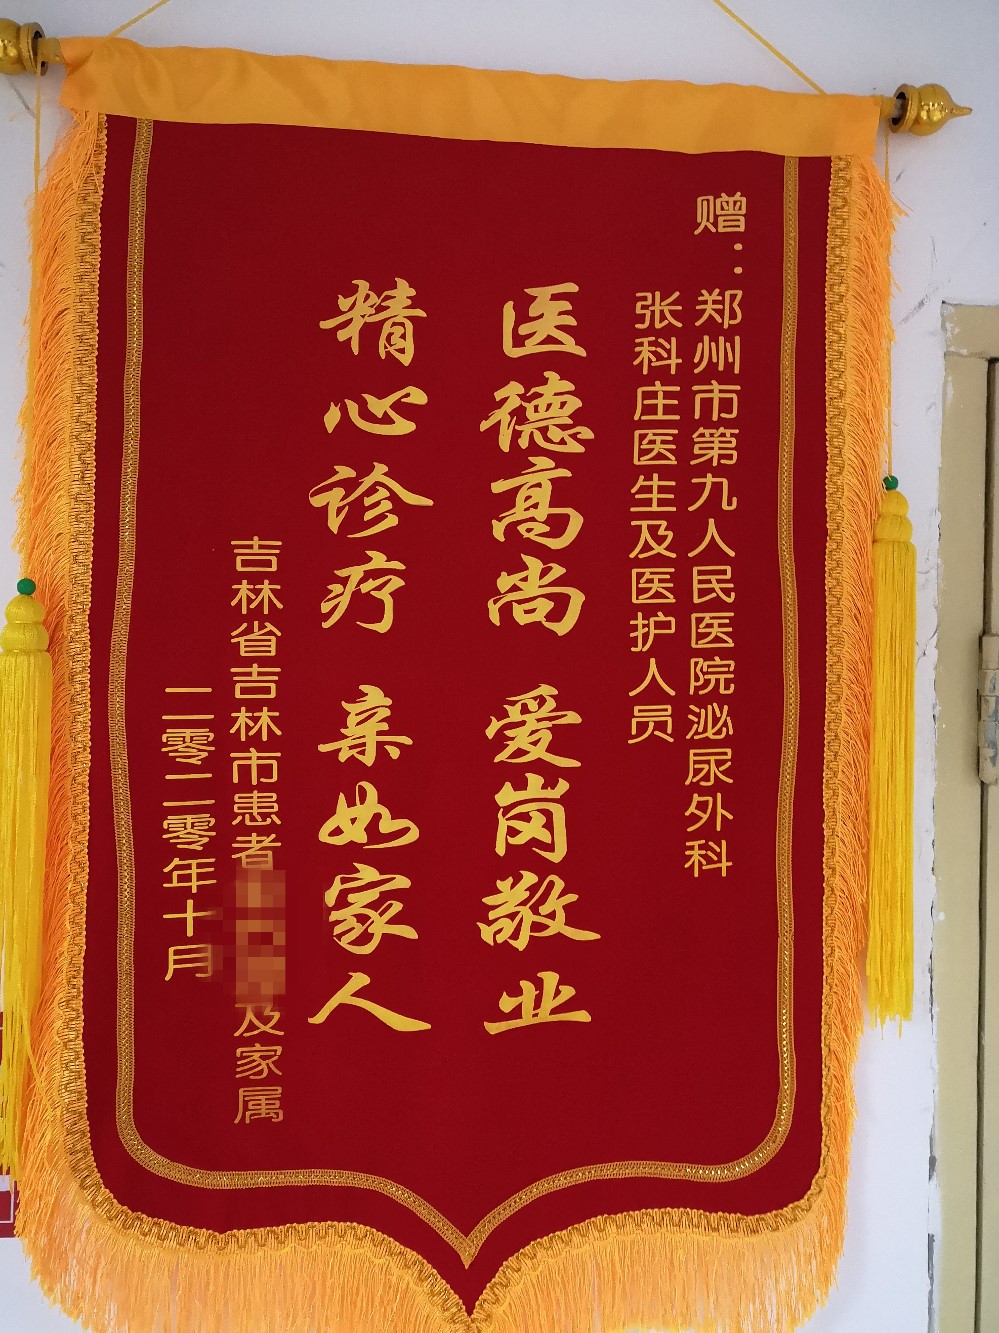 赠：郑州市第九人民医院泌尿外科
张科庄医生及医护人员
医德高尚 爱岗敬业
精心诊疗 亲如家人
吉林省吉林市患者及家属
二零二零年十月